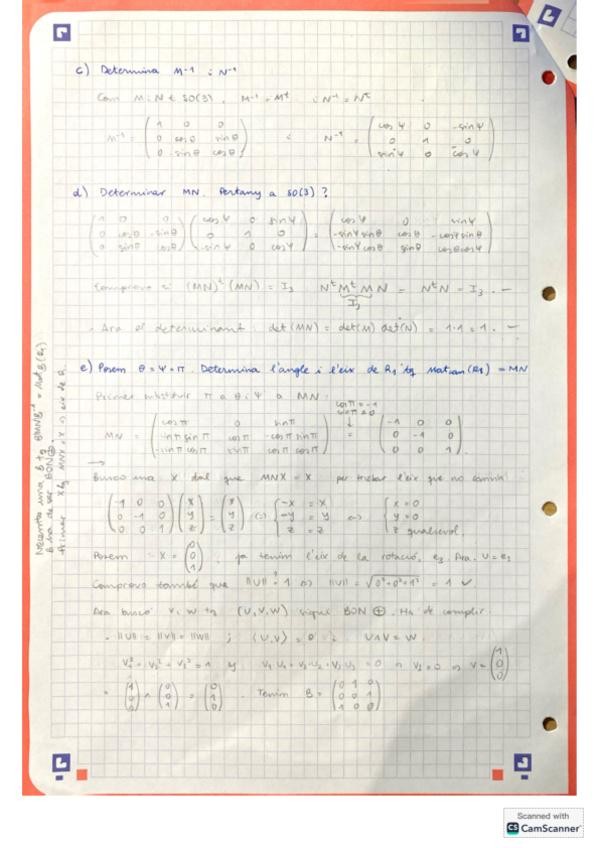 c) Determina M⁻¹ i N⁻¹
Com M i N ∈ SO(3), M⁻¹ = Mᵗ i N⁻¹ = Nᵗ
M⁻¹ = (1 0 0 / 0 cosθ sinθ / 0 -sinθ cosθ) i N⁻¹ = (cosΨ 0 -sinΨ / 0 1 0 / sinΨ 0 cosΨ)
d) Determinar MN. Pertany a SO(3)?
(1 0 0 / 0 cosθ -sinθ / 0 sinθ cosθ) (cosΨ 0 sinΨ / 0 1 0 / -sinΨ 0 cosΨ) = (cosΨ 0 sinΨ / -sinΨ sinθ cosθ -cosΨ sinθ / -sinΨ cosθ sinθ cosθ cosΨ)
Comprovo : (MN)ᵗ (MN) = I₃ NᵗMᵗMN = NᵗN = I₃.
I₃
Ara el determinant: det(MN) = det(M) det(N) = 1·1 = 1.
e) Posem θ = Ψ = π. Determina l'angle i l'eix de R₁ tq Mat can (R₁) = MN
Primer substituir π a θ i Ψ a MN:
cosπ = -1
sinπ = 0
MN = (cosπ 0 sinπ / -sinπ sinπ cosπ -cosπ sinπ / -sinπ cosπ sinπ cosπ cosπ) = (-1 0 0 / 0 -1 0 / 0 0 1).
Busco una X tal que MNX = X per trobar l'eix que no canvia
(-1 0 0 / 0 -1 0 / 0 0 1) (x / y / z) = (x / y / z) ⇔ { -x = x / -y = y / z = z ⇔ { x = 0 / y = 0 / z qualsevol.
Posem X = (0 / 0 / 1), ja tenim l'eix de la rotació, e₃. Ara. U = e₃
Comprovo també que ||U|| = 1 ⇒ ||U|| = √0²+0²+1² = 1 ✓
Ara busco V, W tq (U,V,W) sigui BON ⊕. Ha de complir.
· ||U|| = ||V|| = ||W|| ; ⟨U,V⟩ = 0 i U∧V = W.
V₁² + V₂² + V₃² = 1 y V₁U₁ + V₂U₂ + V₃U₃ = 0 V₃ = 0 ⇒ V = (1 / 0 / 0)
(1 / 0 / 0) ∧ (0 / 0 / 1) = (0 / 1 / 0). Tenim B = (0 1 0 / 0 0 1 / 1 0 0)
Necesito una B tq BMNB⁻¹ = Mat B(R₁)
B ha de ser BON ⊕.
Primer X tq MNX = X ⇒ eix de R.
Scanned with
CS CamScanner